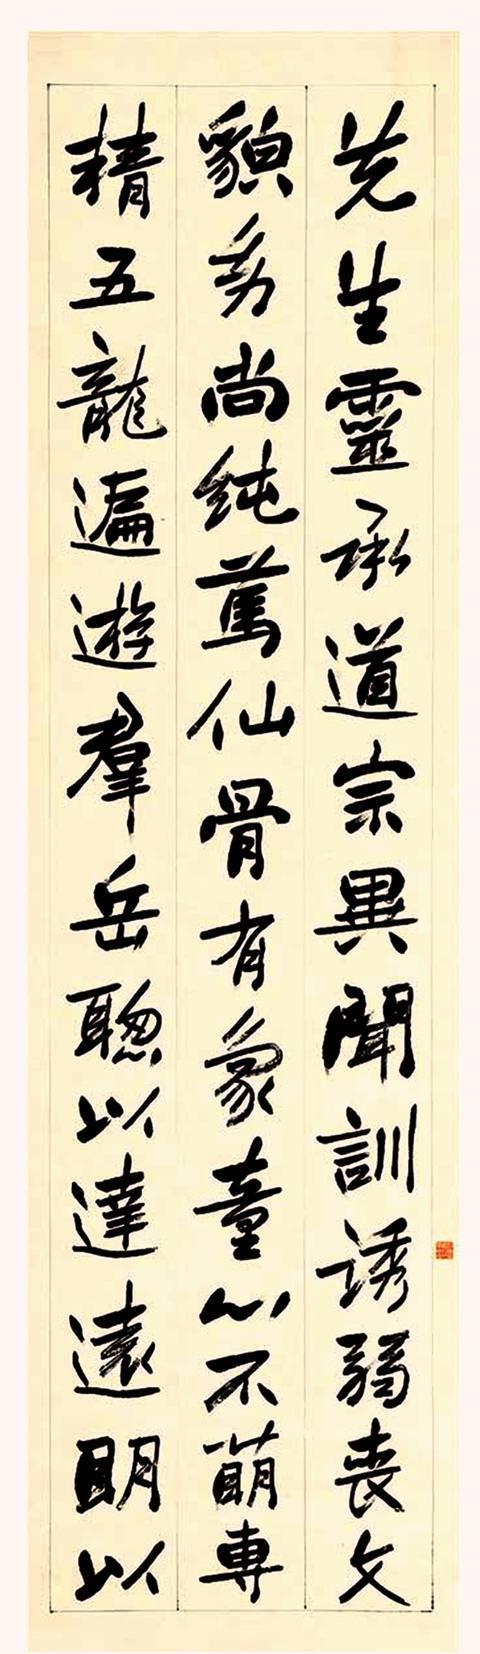 先生靈承道宗異聞訓誘弱喪文
貌幼尚純篤仙骨有象童心不萌專
精五龍遍遊羣岳聰以達遠明以